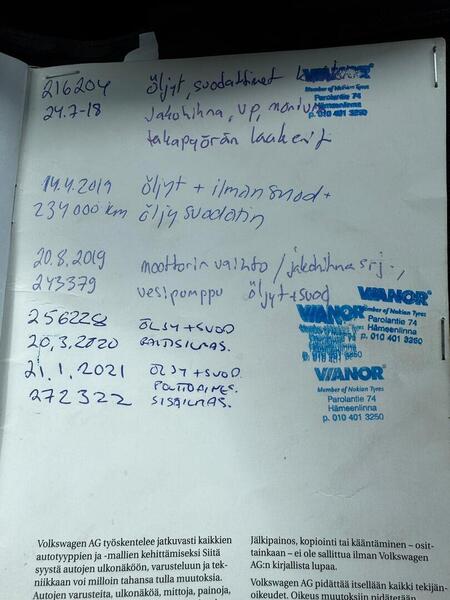 216204 Öljyt, suodattimet
24.7-18 Jakohihna, VP, moniura
takapyörän laakerit
VIANOR
Member of Nokian Tyres
Parolantie 74
Hämeenlinna
p. 010 401 3250
14.4.2019 Öljyt + ilmansuod+
234000 km öljysuodatin
20.8.2019 moottorin vaihto / jakohihna srj.,
243379 vesipumppu öljyt+suod
256228 ÖLJY+SUOD
20.3.2020 RAITISILMAS.
VIANOR
Member of Nokian Tyres
Parolantie 74
Hämeenlinna
p. 010 401 3250
21.1.2021 ÖLJY+SUOD.
POLTTOAINES.
272322 SISÄILMAS.
VIANOR
Member of Nokian Tyres
Parolantie 74
Hämeenlinna
p. 010 401 3250
Volkswagen AG työskentelee jatkuvasti kaikkien
autotyyppien ja -mallien kehittämiseksi Siitä
syystä autojen ulkonäköön, varusteluun ja tek-
niikkaan voi milloin tahansa tulla muutoksia.
Autojen varusteita, ulkonäköä, mittoja, painoja,
Jälkipainos, kopiointi tai kääntäminen – osit-
tainkaan – ei ole sallittua ilman Volkswagen
AG:n kirjallista lupaa.
Volkswagen AG pidättää itsellään kaikki tekijän-
oikeudet. Oikeus muutoksiin pidätetään